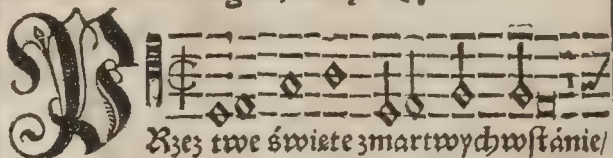 PRzez twe święte zmartwychwſtánie/